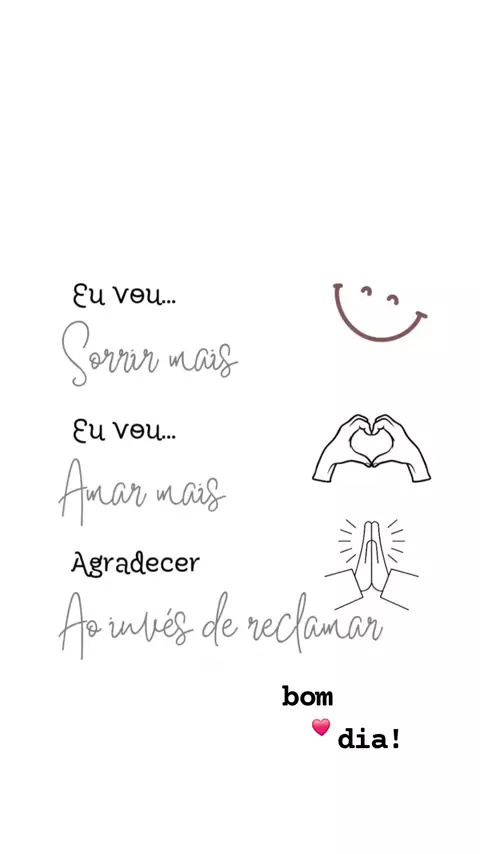 Eu vou...
Sorrir mais
Eu vou...
Amar mais
Agradecer
Ao invés de reclamar
bom
dia!